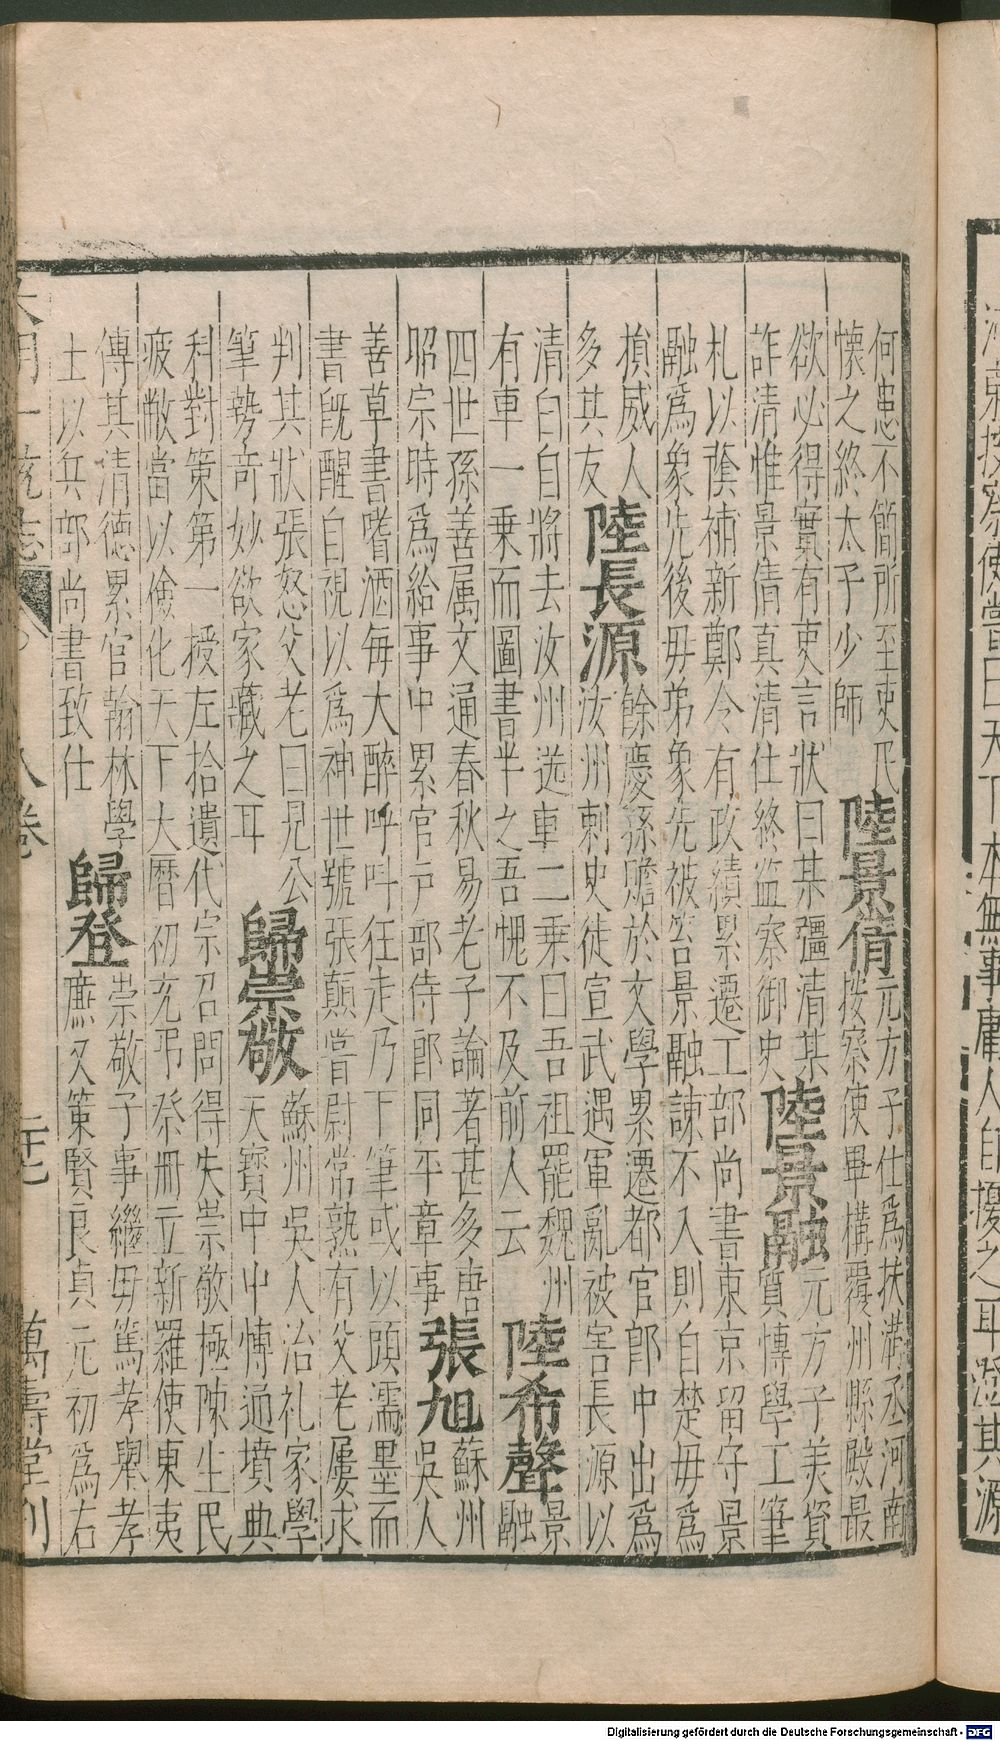 東按察使嘗曰天下本無事庸人自擾之耳澄其源
何患不簡所至吏民
懷之終太子少師
陸景倩
元方子仕爲扶溝丞河南
按察使畢構覆州縣殿最
欲必得實有吏言狀曰某彊清某
詐清惟景倩真清仕終監察御史
陸景融
元方子美資
質博學工筆
札以䕃補新鄭令有政績累遷工部尚書東京留守景
融爲象先後毋弟象先被笞景融諫不入則自楚毋爲
損威人
多其友
陸長源
餘慶孫贍於文學累遷都官郎中出爲
汝州刺史徙宣武遇軍亂被害長源以
清白自將去汝州送車二乗曰吾祖罷魏州
有車一乗而圖書半之吾愧不及前人云
陸希聲
景
融
四世孫善属文通春秋易老子論著甚多唐
昭宗時爲給事中累官户部侍郎同平章事
張旭
蘇州
吳人
善草書嗜酒每大醉呼呌狂走乃下筆或以頭濡墨而
書旣醒自視以爲神世號張顛嘗尉常熟有父老屢求
判其狀張怒父老曰見公
筆勢奇妙欲家藏之耳
歸崇敬
蘇州吳人治礼家學
天寶中中博通墳典
科對策第一授左拾遺代宗召問得失崇敬極陳生民
疲敝當以儉化天下大曆初充弔祭冊立新羅使東夷
傳其清德累官翰林學
士以兵部尚書致仕
歸登
崇敬子事繼毋篤孝舉孝
廉又策賢良貞元初爲右
大明一統志 八卷 二十七 萬壽堂刋
Digitalisierung gefördert durch die Deutsche Forschungsgemeinschaft - DFG